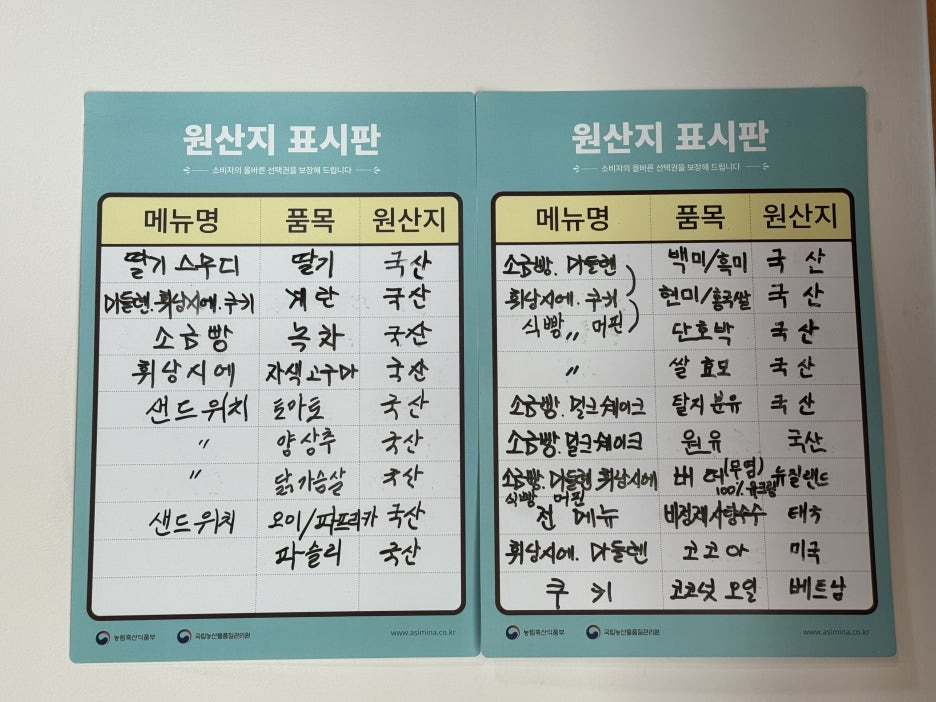 원산지 표시판
소비자의 올바른 선택권을 보장해 드립니다
메뉴명 품목 원산지
딸기 스무디 딸기 국산
마들렌. 휘낭시에. 쿠키 계란 국산
소금빵 녹차 국산
휘낭시에 자색고구마 국산
샌드위치 토마토 국산
〃 양상추 국산
〃 닭가슴살 국산
샌드위치 오이/파프리카 국산
파슬리 국산
농림축산식품부 국립농산물품질관리원 www.asimina.co.kr
원산지 표시판
소비자의 올바른 선택권을 보장해 드립니다
메뉴명 품목 원산지
소금빵. 마들렌 백미/흑미 국산
휘낭시에. 쿠키 현미/홍국쌀 국산
식빵 〃 머핀 단호박 국산
〃 쌀 효모 국산
소금빵. 밀크쉐이크 탈지분유 국산
소금빵. 밀크쉐이크 원유 국산
소금빵. 마들렌. 휘낭시에 버터(무염) 뉴질랜드
식빵 머핀 100% 유크림
전 메뉴 비정제 사탕수수 태국
휘낭시에. 마들렌 코코아 미국
쿠키 코코넛 오일 베트남
농림축산식품부 국립농산물품질관리원 www.asimina.co.kr